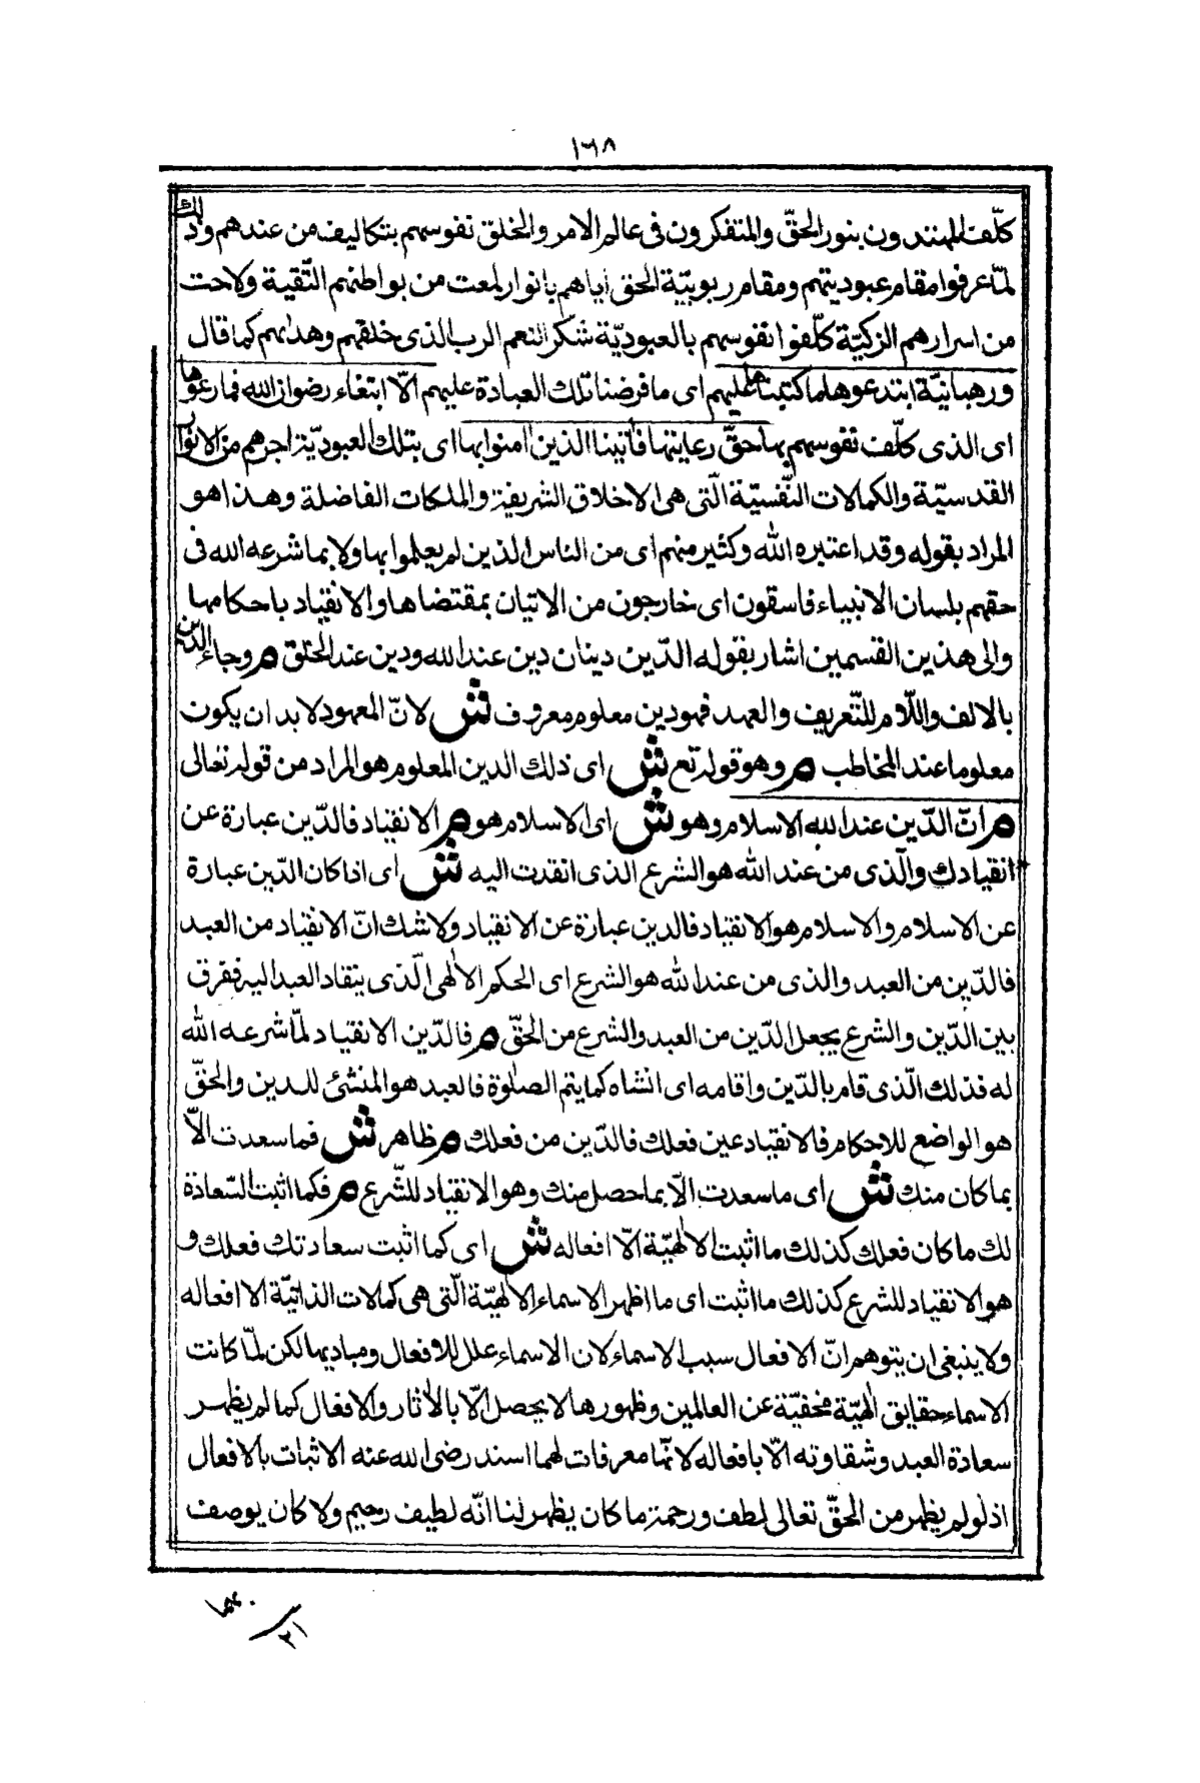 ١٦٨
كلّفت المهتدون بنور الحقّ والمتفكرون فى عالم الامر والخلق نفوسهم بتكاليف من عندهم وذلك
لمّا عرفوا مقام عبوديتهم ومقام ربوبيّة الحق اياهم بانوار لمعت من بواطنهم التّقية ولاحت
من اسرارهم الزكيّة كلّفوا نفوسهم بالعبوديّة شكرا لنعم الرب الذى خلقهم وهداهم كما قال
ورهبانيّة ابتدعوها ما كتبناها عليهم اى ما فرضنا تلك العبادة عليهم الّا ابتغاء رضوان الله فما رعوها
اى الذى كلّفت نفوسهم بها حقّ رعايتها فآتينا الذين امنوا بها اى بتلك العبوديّة اجرهم من الانوار
القدسيّة والكمالات النّفسيّة الّتى هى الاخلاق الشريفة والملكات الفاضلة وهذا هو
المراد بقوله وقد اعتبره الله وكثير منهم اى من الناس الذين لم يعلموا بها ولا بما شرعه الله فى
حقهم بلسان الانبياء فاسقون اى خارجون من الاتيان بمقتضاها والانقياد باحكامها
والى هذين القسمين اشار بقوله الدّين دينان دين عند الله ودين عند الخلق م وجاء الدّين
بالالف واللّام للتّعريف والعهد فهو دين معلوم معروف ش لانّ المعهود لا بد ان يكون
معلوما عند المخاطب م وهو قوله تع ش اى ذلك الدين المعلوم هو المراد من قوله تعالى
م انّ الدّين عند الله الاسلام وهو ش اى الاسلام هو م الانقياد فالدّين عبارة عن
انقيادك والّذى من عند الله هو الشرع الذى انقدت اليه ش اى اذا كان الدّين عبارة
عن الاسلام والاسلام هو الانقياد فالدين عبارة عن الانقياد ولا شك انّ الانقياد من العبد
فالدّين من العبد والذى من عند الله هو الشرع اى الحكم الالٰهى الّذى ينقاد العبد اليه ففرق
بين الدّين والشرع بجعل الدّين من العبد والشرع من الحقّ م فالدّين الانقياد لمّا شرعه الله
له فذلك الّذى قام بالدّين واقامه اى انشاه كما يتم الصلوٰة فالعبد هو المنشئ للدين والحقّ
هو الواضع للاحكام فالانقياد عين فعلك فالدّين من فعلك م ظاهر ش فما سعدت الّا
بما كان منك ش اى ما سعدت الّا بما حصل منك وهو الانقياد للشّرع م فكما اثبت السّعادة
لك ما كان فعلك كذلك ما اثبت الالٰهيّة الّا افعاله ش اى كما اثبت سعادتك فعلك و
هو الانقياد للشرع كذلك ما اثبت اى ما اظهر الاسماء الالٰهيّة الّتى هى كمالات الذاتيّة الا افعاله
ولا ينبغى ان يتوهم انّ الافعال سبب الاسماء لان الاسماء علل للافعال ومباديها لكن لمّا كانت
الاسماء حقايق الٰهيّة مخفيّة عن العالمين وظهورها لا يحصل الّا بالاٰثار والافعال كما لم يظهر
سعادة العبد وشقاوته الّا بافعاله لانّها معرفات لهما اسند رضى الله عنه الاثبات بالافعال
اذ لو لم يظهر من الحقّ تعالى لطف ورحمة ما كان يظهر لنا انّه لطيف رحيم ولا كان يوصف
٢١